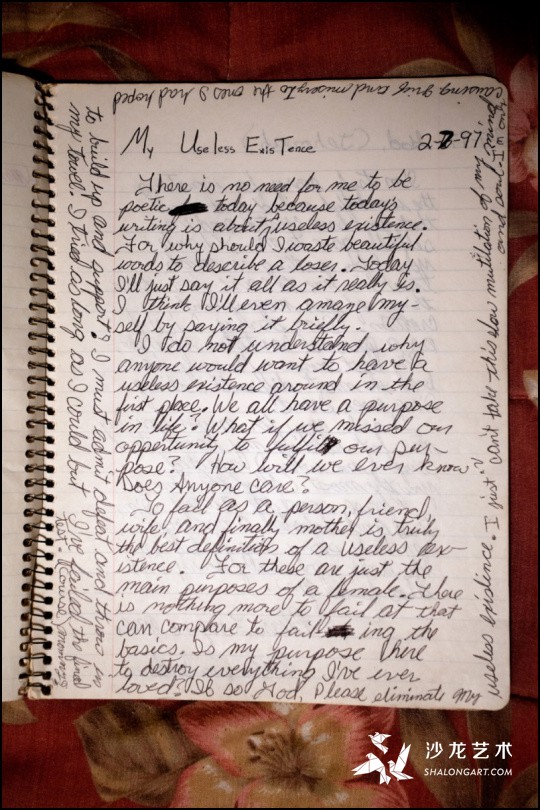 My Useless ExisTence
2-7-97
There is no need for me to be
poetic today because today's
writing is about useless existence.
For why should I waste beautiful
words to describe a loser. Today
I'll just say it all as it really is.
I think I'll even amaze my-
self by saying it briefly.
I do not understand why
anyone would want to have a
useless existence around in the
first place. We all have a purpose
in life. What if we missed our
opportunity to fulfill our pur-
pose? How will we ever know?
Does Anyone care?
To fail as a person, friend,
wife, and finally mother is truly
the best definition of a useless ex-
istence. For these are just the
main purposes of a female. There
is nothing more to fail at that
can compare to fail ing the
basics. Is my purpose here
to destroy everything I've ever
loved? If so God, Please eliminate my
useless existence. I just can't take this slow mutilation of my mind
and soul. I'm only
causing grief and misery to the ones I had hoped
to build up and support? I must admit defeat and throw in
my towel. I tried as long as I could but I've failed the final
test.
沙龙艺术
SHALONGART.COM